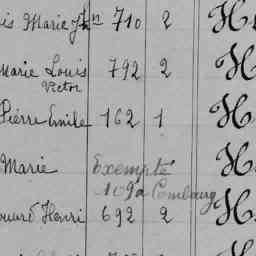 is Marie Jh n 710 2 H
Marie Louis 792 2 H
Victor
Pierre Emile 162 1 H
Marie Exempté H
109a Combourg
ouard Henri 692 2 H